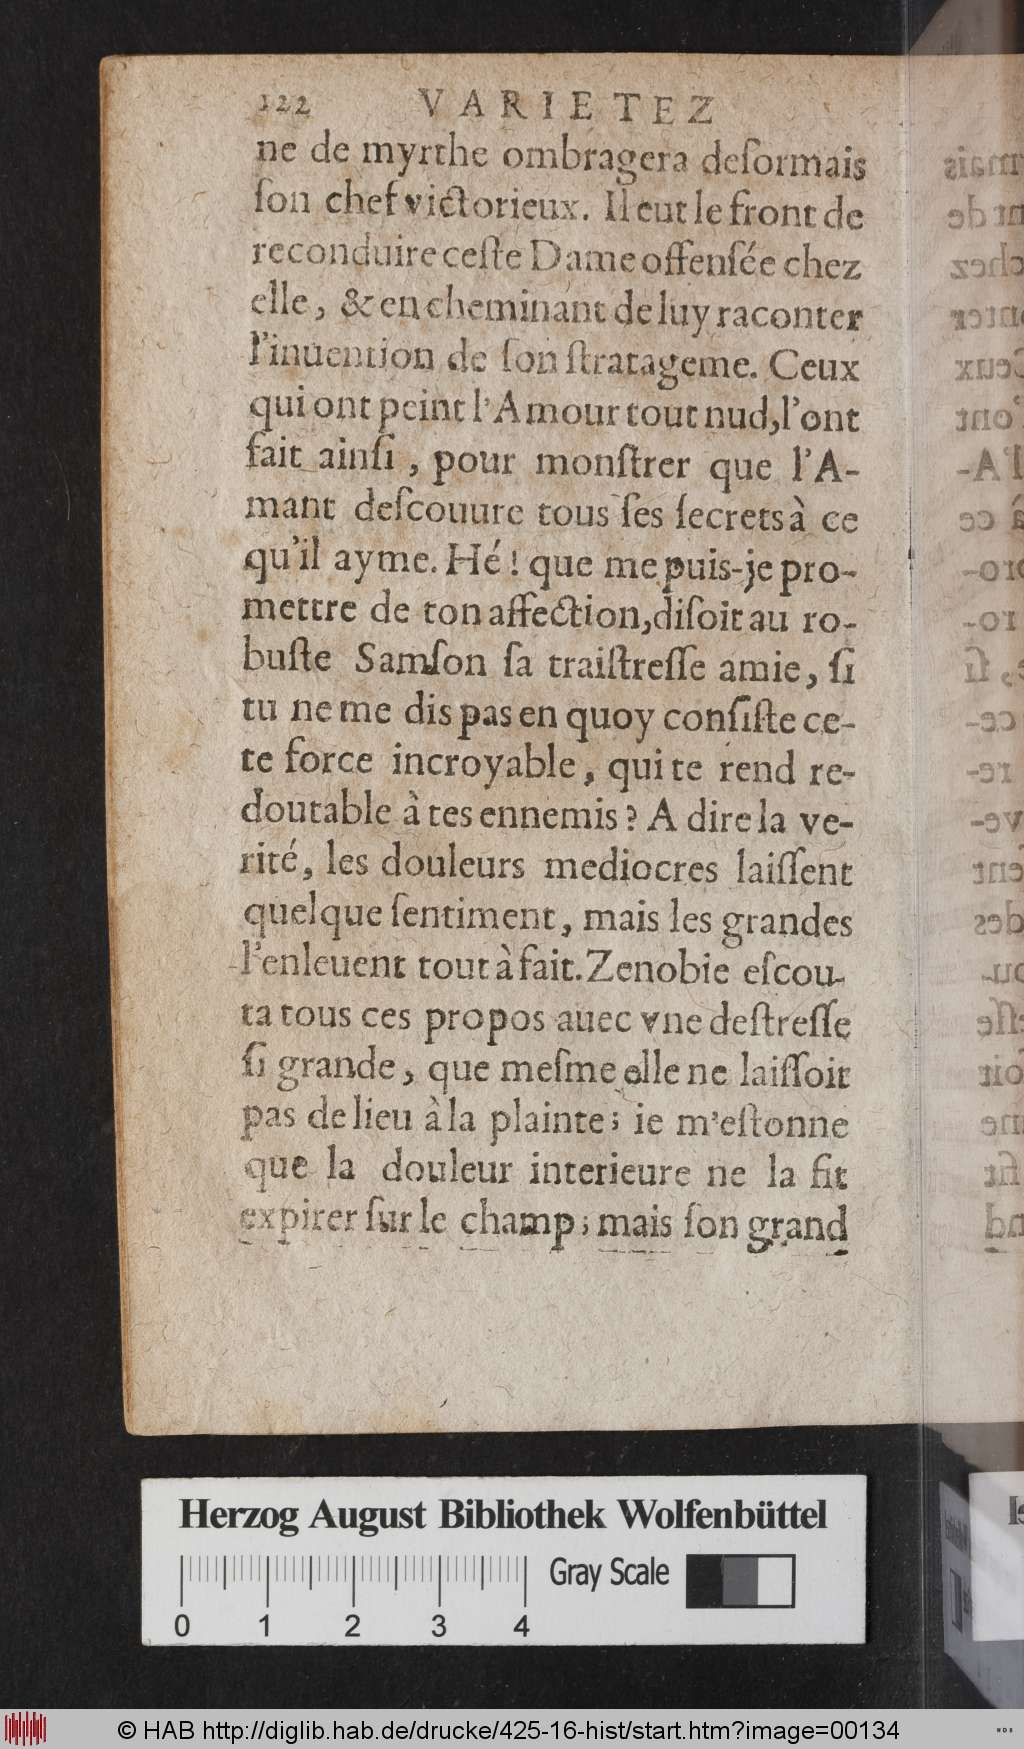 122 VARIETEZ
ne de myrthe ombragera deſormais
ſon chef victorieux. Il eut le front de
reconduire ceſte Dame offenſée chez
elle, & en cheminant de luy raconter
l'inuention de ſon ſtratageme. Ceux
qui ont peint l'Amour tout nud, l'ont
fait ainſi, pour monſtrer que l'A-
mant deſcouure tous ſes ſecrets à ce
qu'il ayme. Hé! que me puis-je pro-
mettre de ton affection, diſoit au ro-
buſte Samſon ſa traiſtreſſe amie, ſi
tu ne me dis pas en quoy conſiſte ce-
te force incroyable, qui te rend re-
doutable à tes ennemis? A dire la ve-
rité, les douleurs mediocres laiſſent
quelque ſentiment, mais les grandes
l'enleuent tout à fait. Zenobie eſcou-
ta tous ces propos auec vne deſtreſſe
ſi grande, que meſme elle ne laiſſoit
pas de lieu à la plainte; ie m'eſtonne
que la douleur interieure ne la fit
expirer ſur le champ; mais ſon grand
Herzog August Bibliothek Wolfenbüttel
Gray Scale
0 1 2 3 4
© HAB http://diglib.hab.de/drucke/425-16-hist/start.htm?image=00134